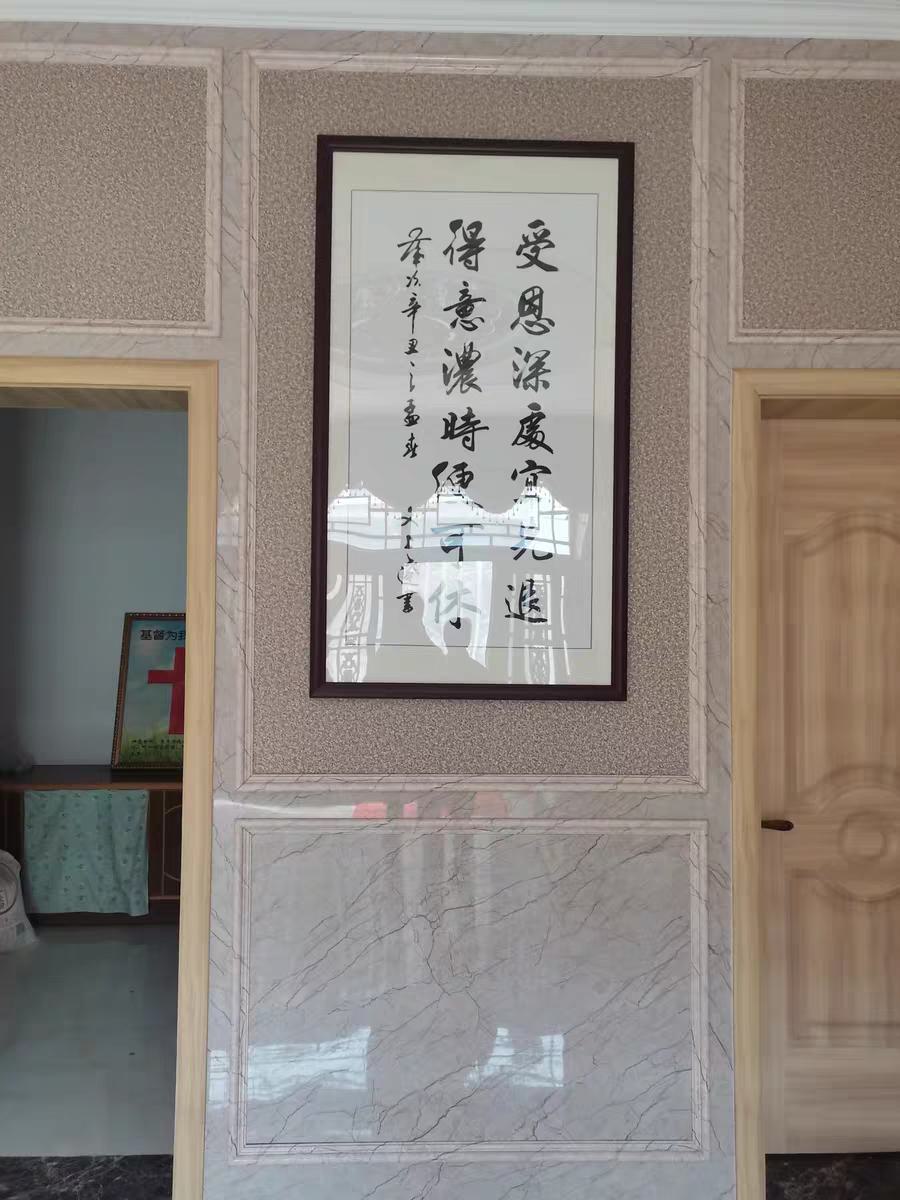 受恩深處宜先退
得意濃時便可休
歲次辛丑之孟春
書
基督为我